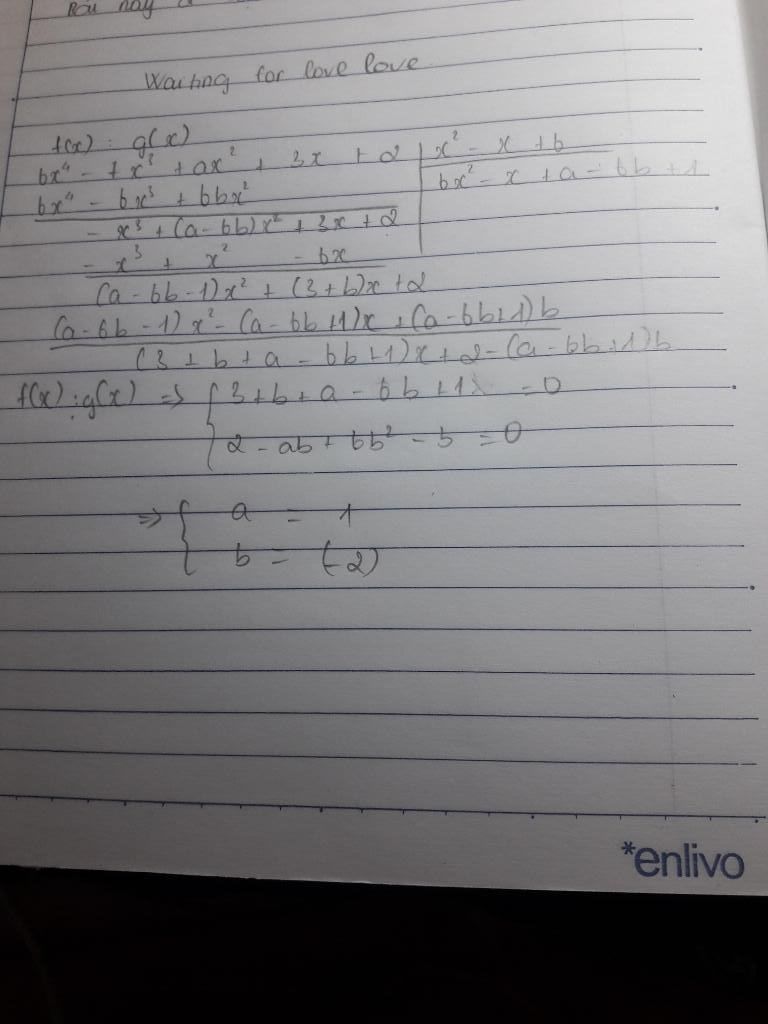 Waiting for love love
f(x) : g(x)
6x⁴ - 7x³ + ax² + 3x + 2 | x² - x + b
6x⁴ - 6x³ + 6bx² | 6x² - x + a - 6b + 1
- x³ + (a - 6b)x² + 3x + 2
- x³ + x² - bx
(a - 6b - 1)x² + (3 + b)x + 2
(a - 6b - 1)x² - (a - 6b + 1)x + (a - 6b + 1)b
(3 + b + a - 6b + 1)x + 2 - (a - 6b + 1)b
f(x) ⋮ g(x) => { 3 + b + a - 6b + 1 = 0
2 - ab + 6b² - b = 0
=> { a = 1
b = (-2)
*enlivo